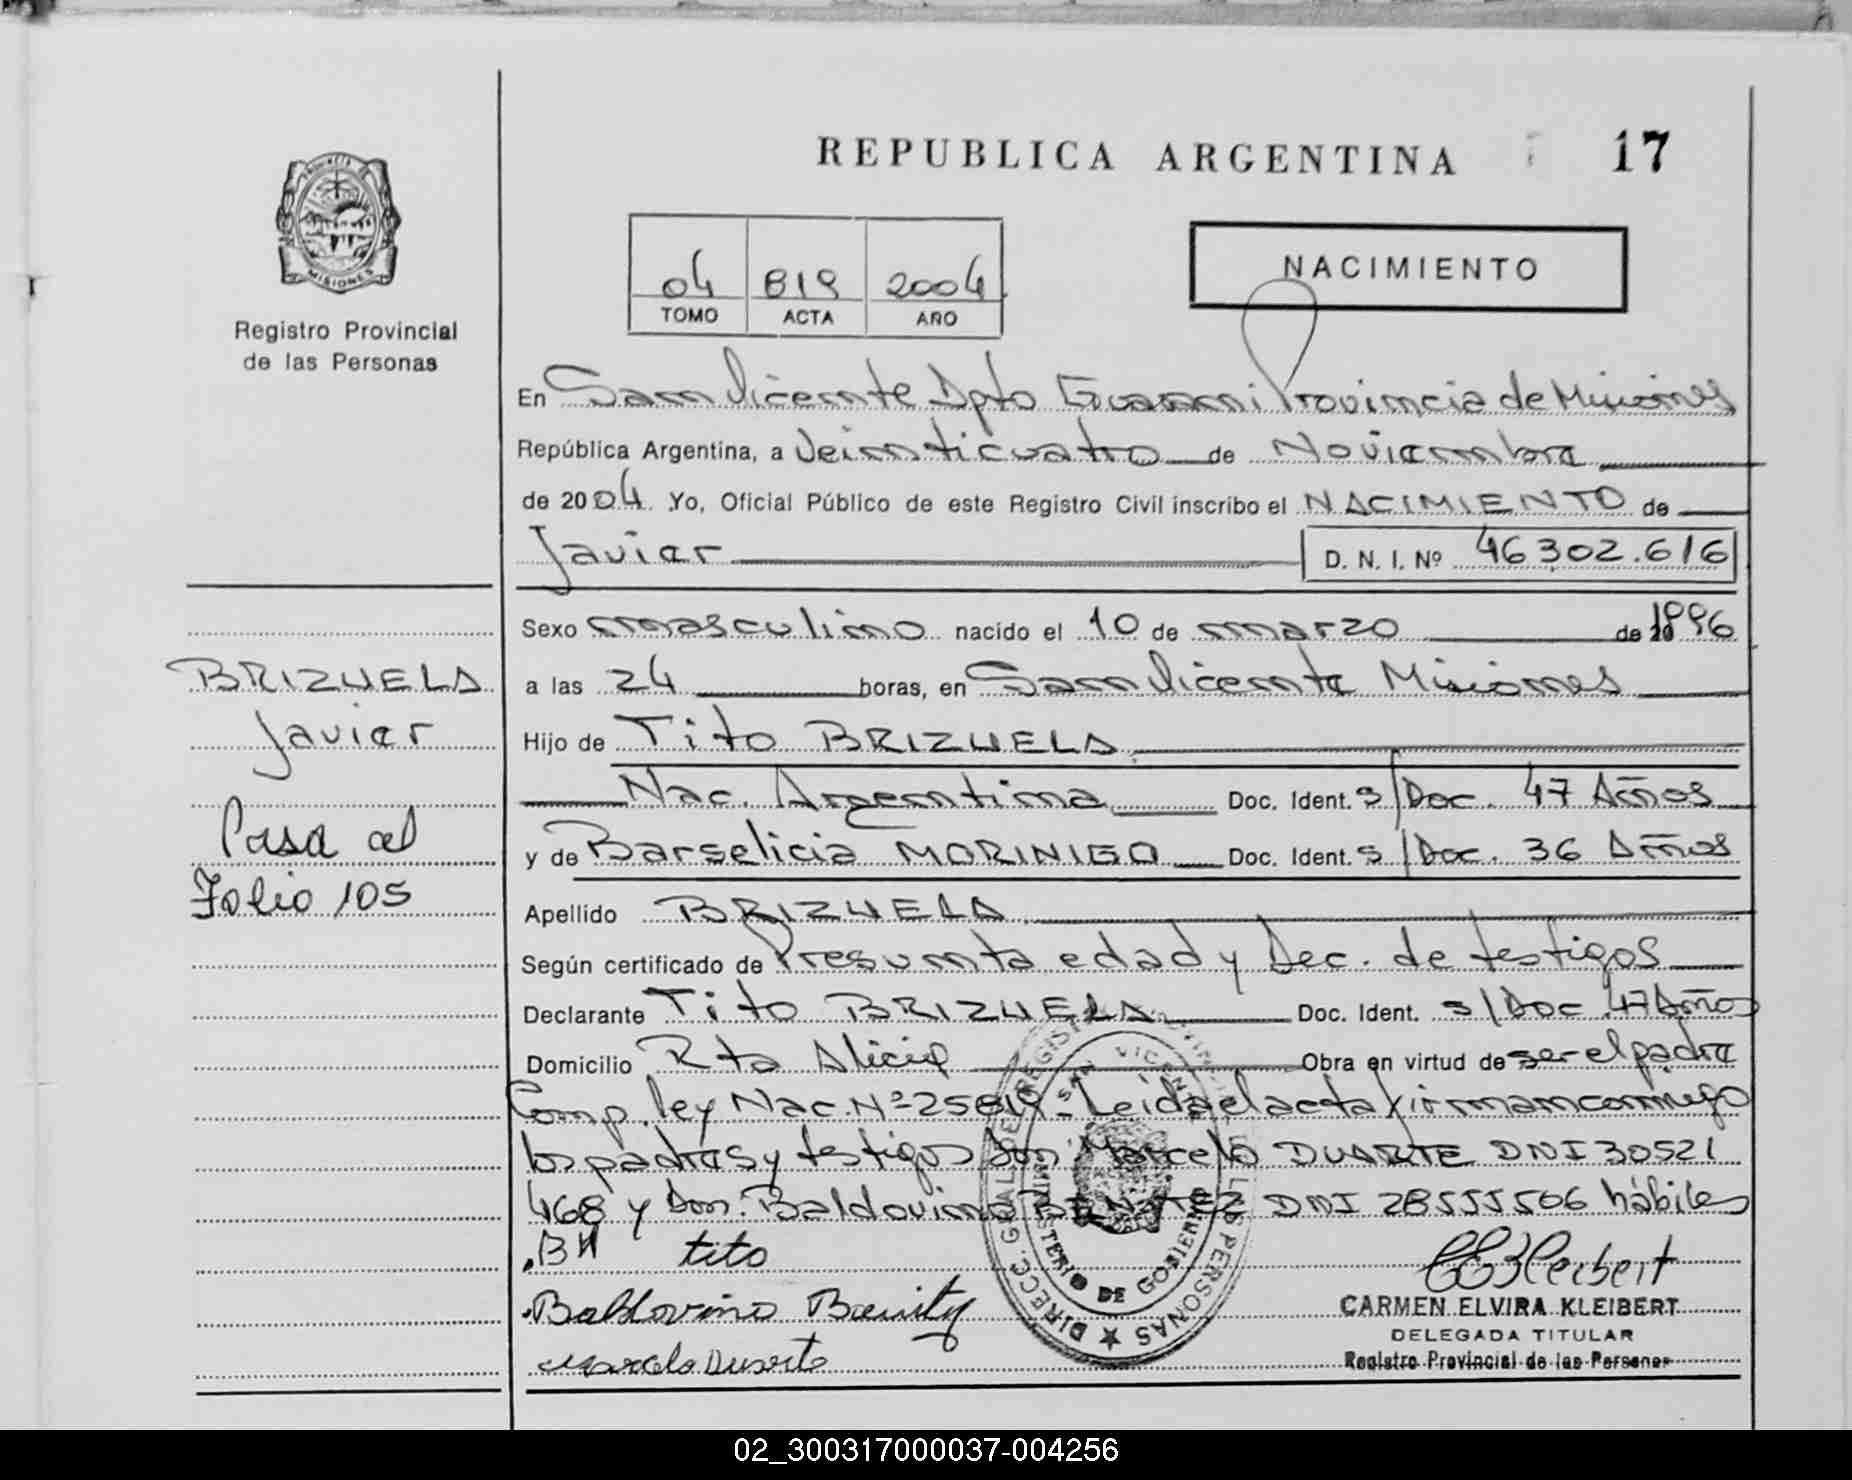 REPUBLICA ARGENTINA
17
PROVINCIA DE MISIONES
Registro Provincial
de las Personas
04 819 2004
TOMO ACTA AÑO
NACIMIENTO
En San Vicente Dpto Guarani Provincia de Misiones
República Argentina, a Veinticuatro de Noviembre
de 2004. Yo, Oficial Público de este Registro Civil inscribo el NACIMIENTO de
Javier D. N. I. Nº 46302.616
Sexo masculino nacido el 10 de marzo de 1996
a las 24 horas, en San Vicente Misiones
Hijo de Tito BRIZUELA
Nac. Argentina Doc. Ident. S/Doc. 47 Años
y de Barselicia MORINIGO Doc. Ident. S/Doc. 36 Años
Apellido BRIZUELA
Según certificado de Presunta edad y Dec. de testigos
Declarante Tito BRIZUELA Doc. Ident. S/Doc. 47 Años
Domicilio Rta Alicia Obra en virtud de ser el padre
Comp. ley Nac. Nº 25819 - Leida el acta firman conmigo
los padres y testigos Don Marcelo DUARTE DNI 30521
468 y Don. Baldovino BENITEZ DNI 28555506 hábiles
BM tito
Baldovino Benitez
Marcelo Duarte
CEKleibert
CARMEN ELVIRA KLEIBERT
DELEGADA TITULAR
Registro Provincial de las Personas
DIRECC. GRAL DE REGISTRO PROVINCIAL DE LAS PERSONAS
SAN VICENTE
MINISTERIO DE GOBIERNO
BRIZUELA
Javier
Pasa al
Folio 105
02_300317000037-004256